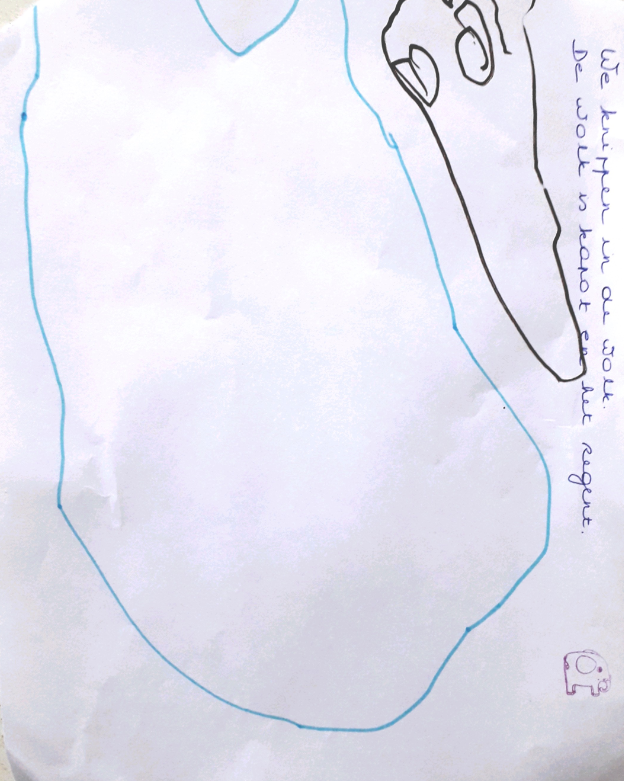 We knippen in de wolk.
De wolk is kapot en het regent.